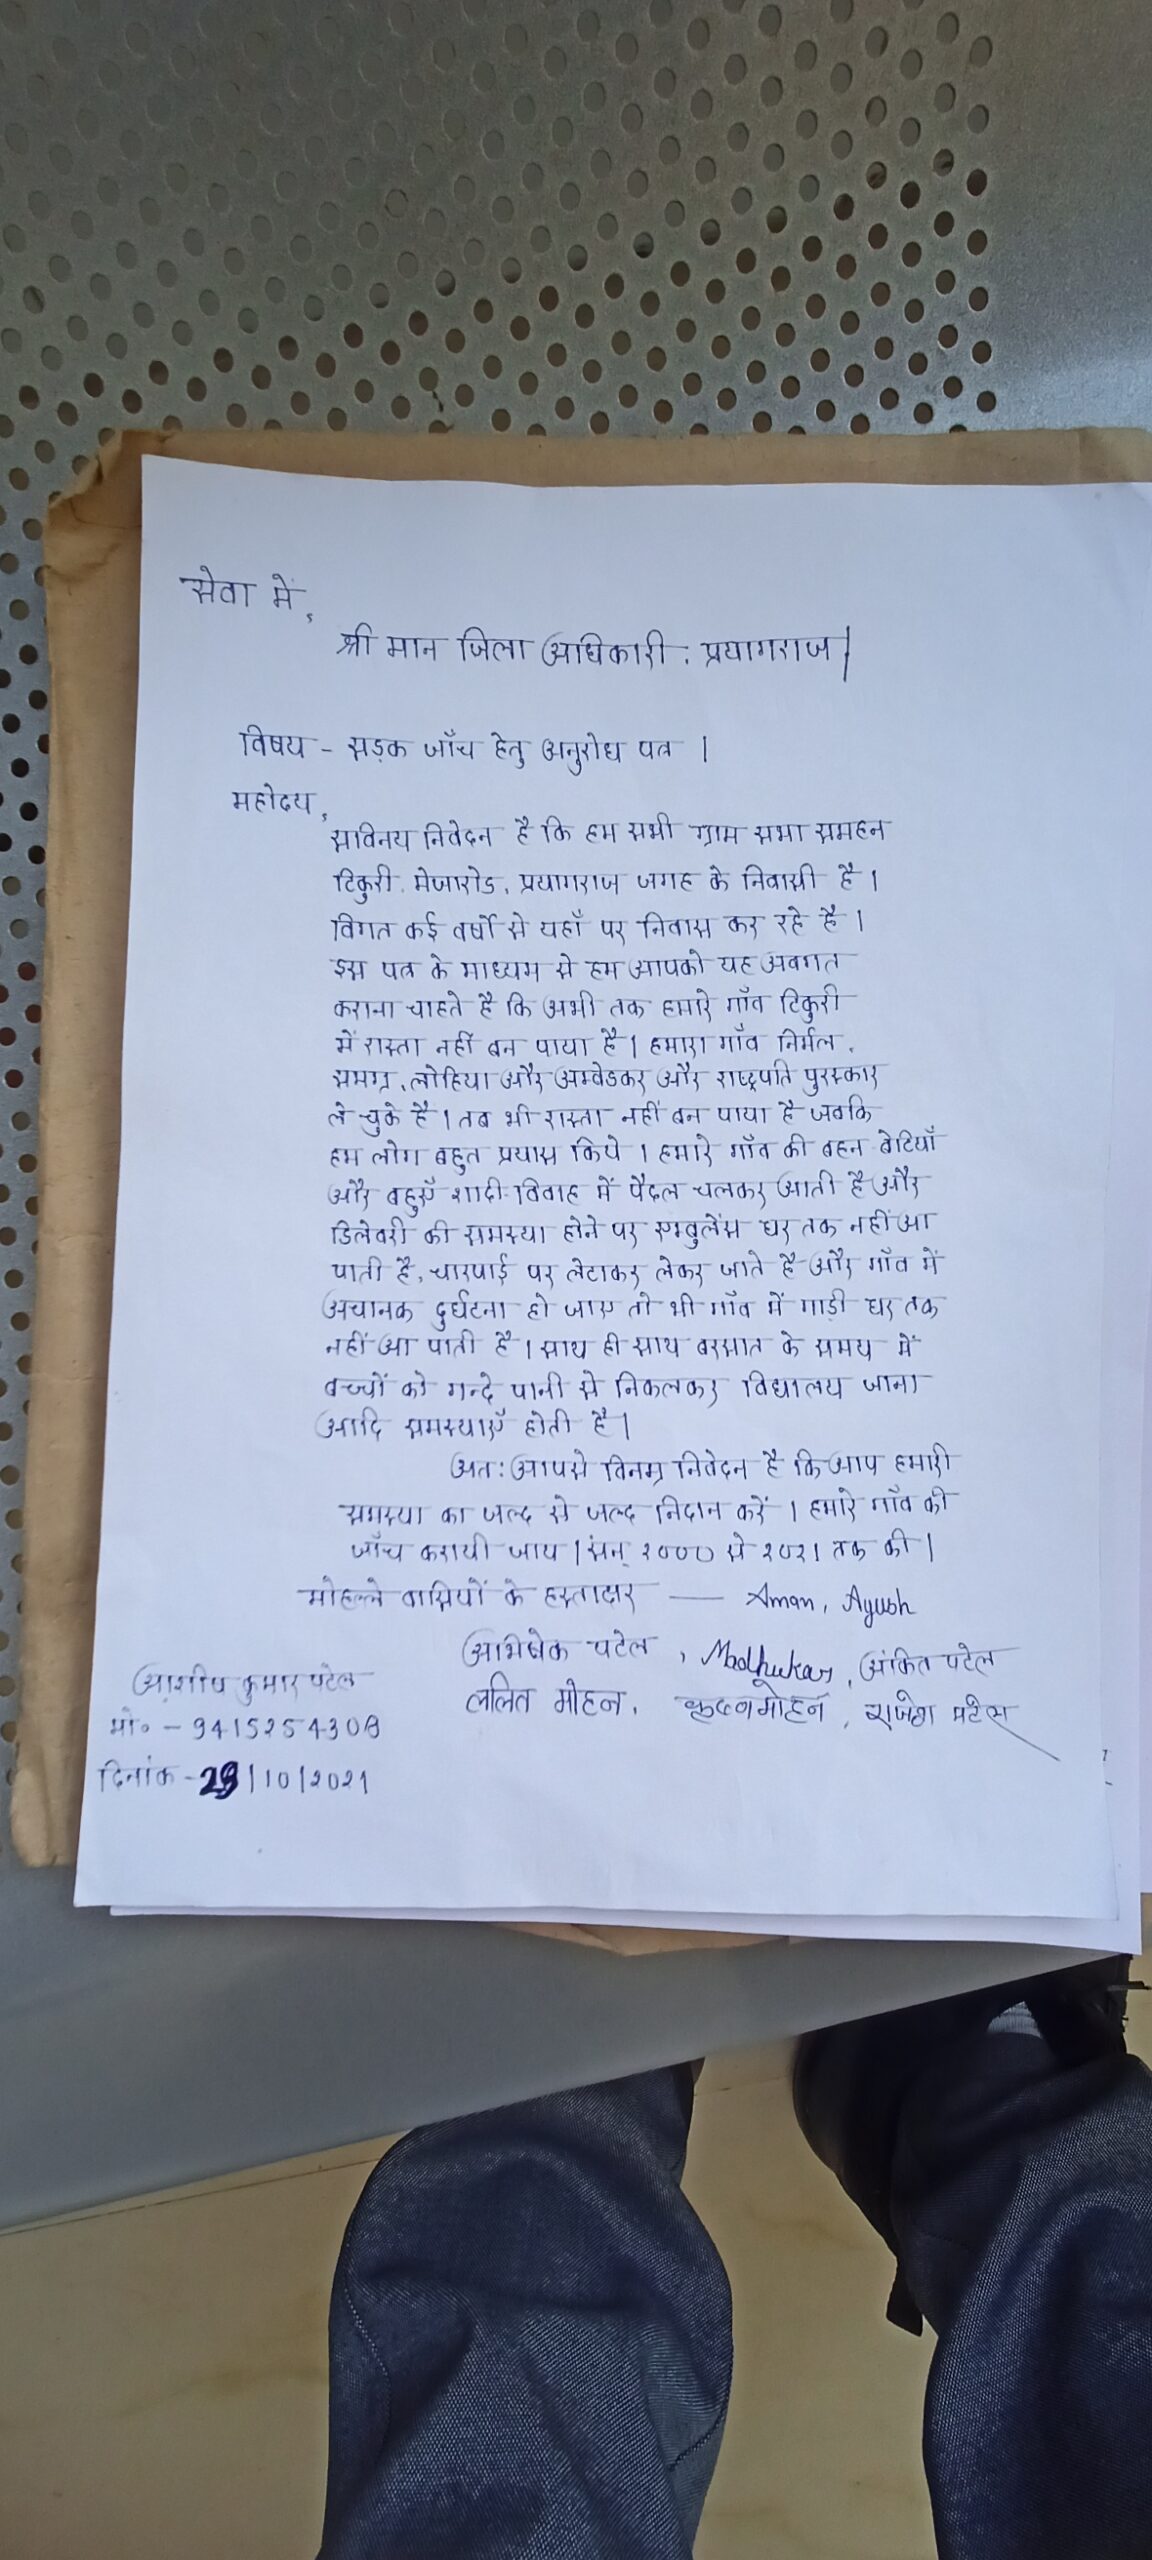 सेवा में,
श्री मान जिला अधिकारी. प्रयागराज|
विषय - सड़क जाँच हेतु अनुरोध पत्र ।
महोदय,
सविनय निवेदन है कि हम सभी ग्राम सभा समहन
टिकुरी. मेजारोड. प्रयागराज जगह के निवासी है ।
विगत कई वर्षो से यहाँ पर निवास कर रहे है ।
इस पत्र के माध्यम से हम आपको यह अवगत
कराना चाहते है कि अभी तक हमारे गाँव टिकुरी
में रास्ता नहीं बन पाया है । हमारा गाँव निर्मल.
समग्र. लोहिया और अम्बेडकर और राष्ट्रपति पुरस्कार
ले चुके है । तब भी रास्ता नहीं बन पाया है जबकि
हम लोग बहुत प्रयास किये । हमारे गाँव की बहन बेटियाँ
और बहुएँ शादी-विवाह में पैदल चलकर आती है और
डिलेवरी की समस्या होने पर एम्बुलेंस घर तक नहीं आ
पाती है, चारपाई पर लेटाकर लेकर जाते है और गाँव में
अचानक दुर्घटना हो जाए तो भी गाँव में गाड़ी घर तक
नहीं आ पाती है । साथ ही साथ बरसात के समय में
बच्चों को गन्दे पानी से निकलकर विद्यालय जाना
आदि समस्याएँ होती है ।
अतः आपसे विनम्र निवेदन है कि आप हमारी
समस्या का जल्द से जल्द निदान करें । हमारे गाँव की
जाँच करायी जाय । सन् २००० से २०२१ तक की ।
मोहल्ले वासियों के हस्ताक्षर — Aman, Ayush
अभिषेक पटेल, Madhukar, अंकित पटेल
ललित मोहन, कृष्णमोहन, राजेश पटेल
आशीष कुमार पटेल
मो० - 9415254308
दिनांक - 29/10/2021